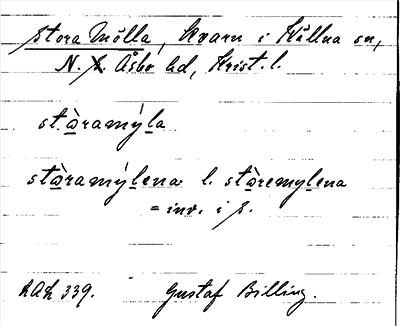 Stora Mölla, kvarn i Källna sn,
N. Åsbo hd, Krist. l.
stàramýla
stàramýlena l. stàremylena
= inv. i
LAL 339. Gustaf Billing.